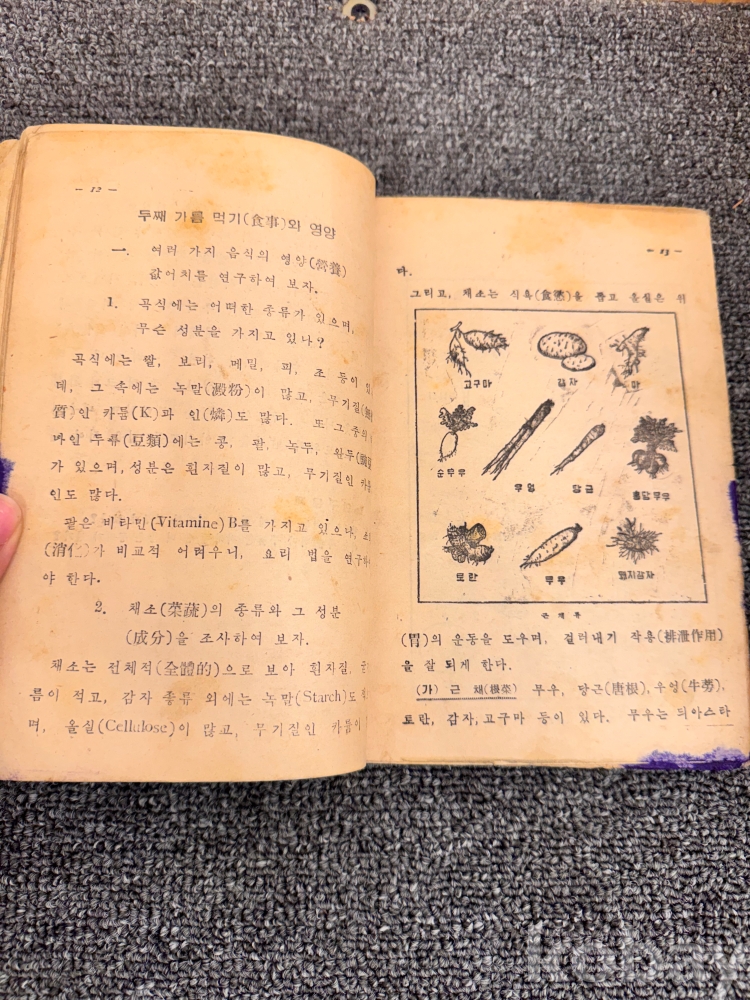 - 12 -
두째 가름 먹기(食事)와 영양
一. 여러 가지 음식의 영양(營養)
값어치를 연구하여 보자.
1. 곡식에는 어떠한 종류가 있으며,
무슨 성분을 가지고 있나?
곡식에는 쌀, 보리, 메밀, 피, 조 등이 있
데, 그 속에는 녹말(澱粉)이 많고, 무기질(無
質)인 카름(K)과 인(燐)도 많다. 또 그 중의
바인 두류(豆類)에는 콩, 팥, 녹두, 완두(豌豆
가 있으며, 성분은 흰자질이 많고, 무기질인 카름
인도 많다.
팥은 비타민(Vitamine)B를 가지고 있으나, 소
(消化)가 비교적 어려우니, 요리 법을 연구하
야 한다.
2. 채소(菜蔬)의 종류와 그 성분
(成分)을 조사하여 보자.
채소는 전체적(全體的)으로 보아 흰자질,
름이 적고, 감자 종류 외에는 녹말(Starch)도
며, 올실(Cellulose)이 많고, 무기질인 카름이
- 13 -
다.
그리고, 채소는 식욕(食慾)을 돕고 올실은 위
고구마
감자
마
순무우
우엉
당근
홍당무우
토란
무우
돼지감자
근채류
(胃)의 운동을 도우며, 걸러내기 작용(排泄作用)
을 잘 되게 한다.
(가) 근 채(根菜) 무우, 당근(唐根), 우엉(牛蒡),
토란, 감자, 고구마 등이 있다. 무우는 듸아스타
kobay